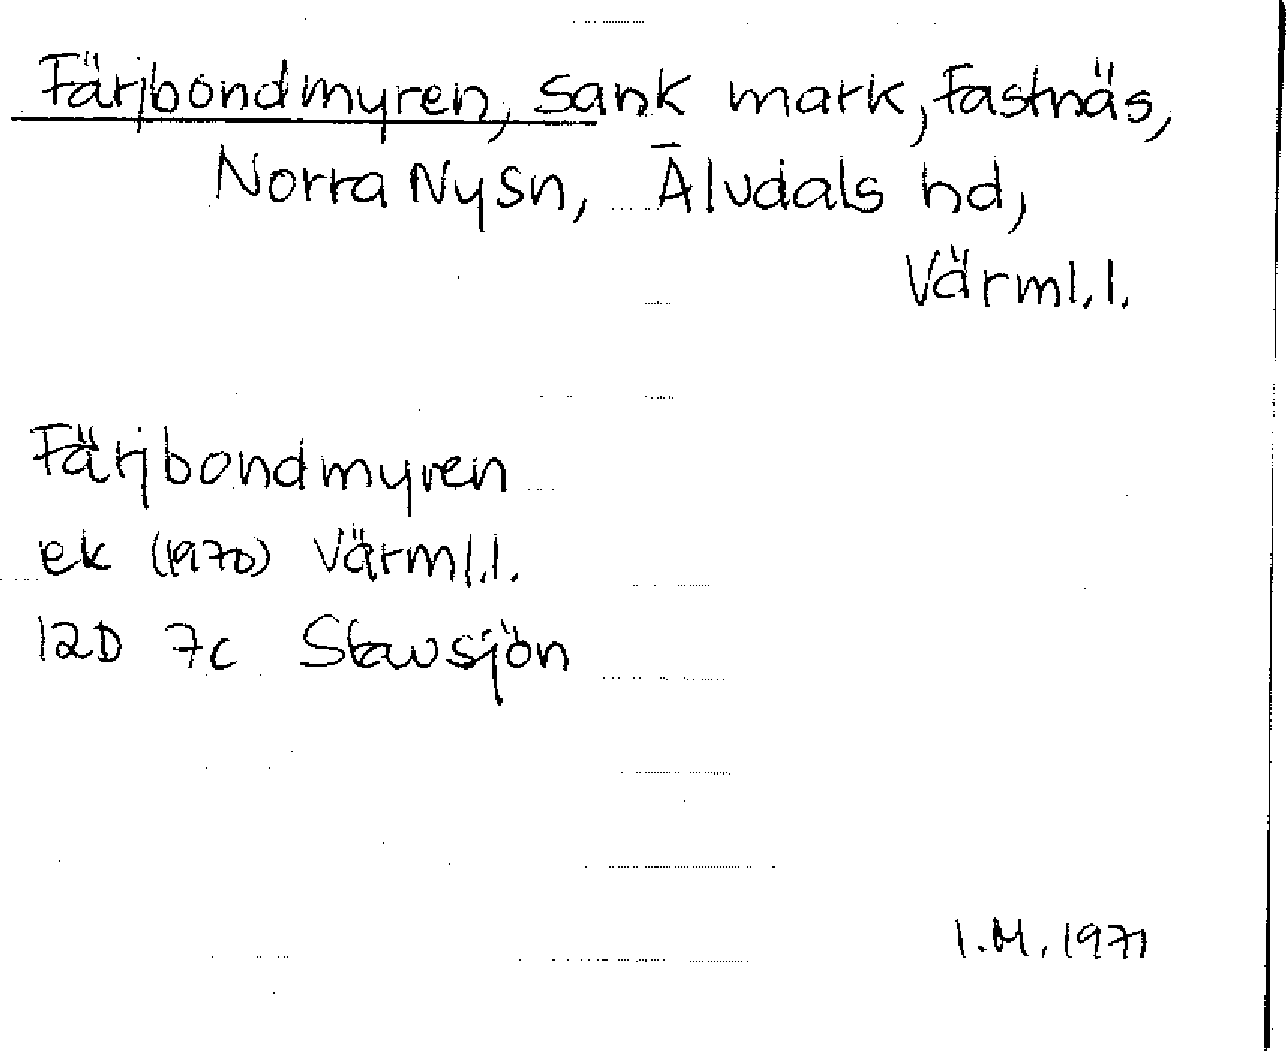 Färjbondmyren, sank mark, Fastnäs,
Norra Ny sn, Älvdals hd,
Värml.l.
Färjbondmyren
ek (1970) Värml.l.
12D 7c Stavsjön
I.M. 1971